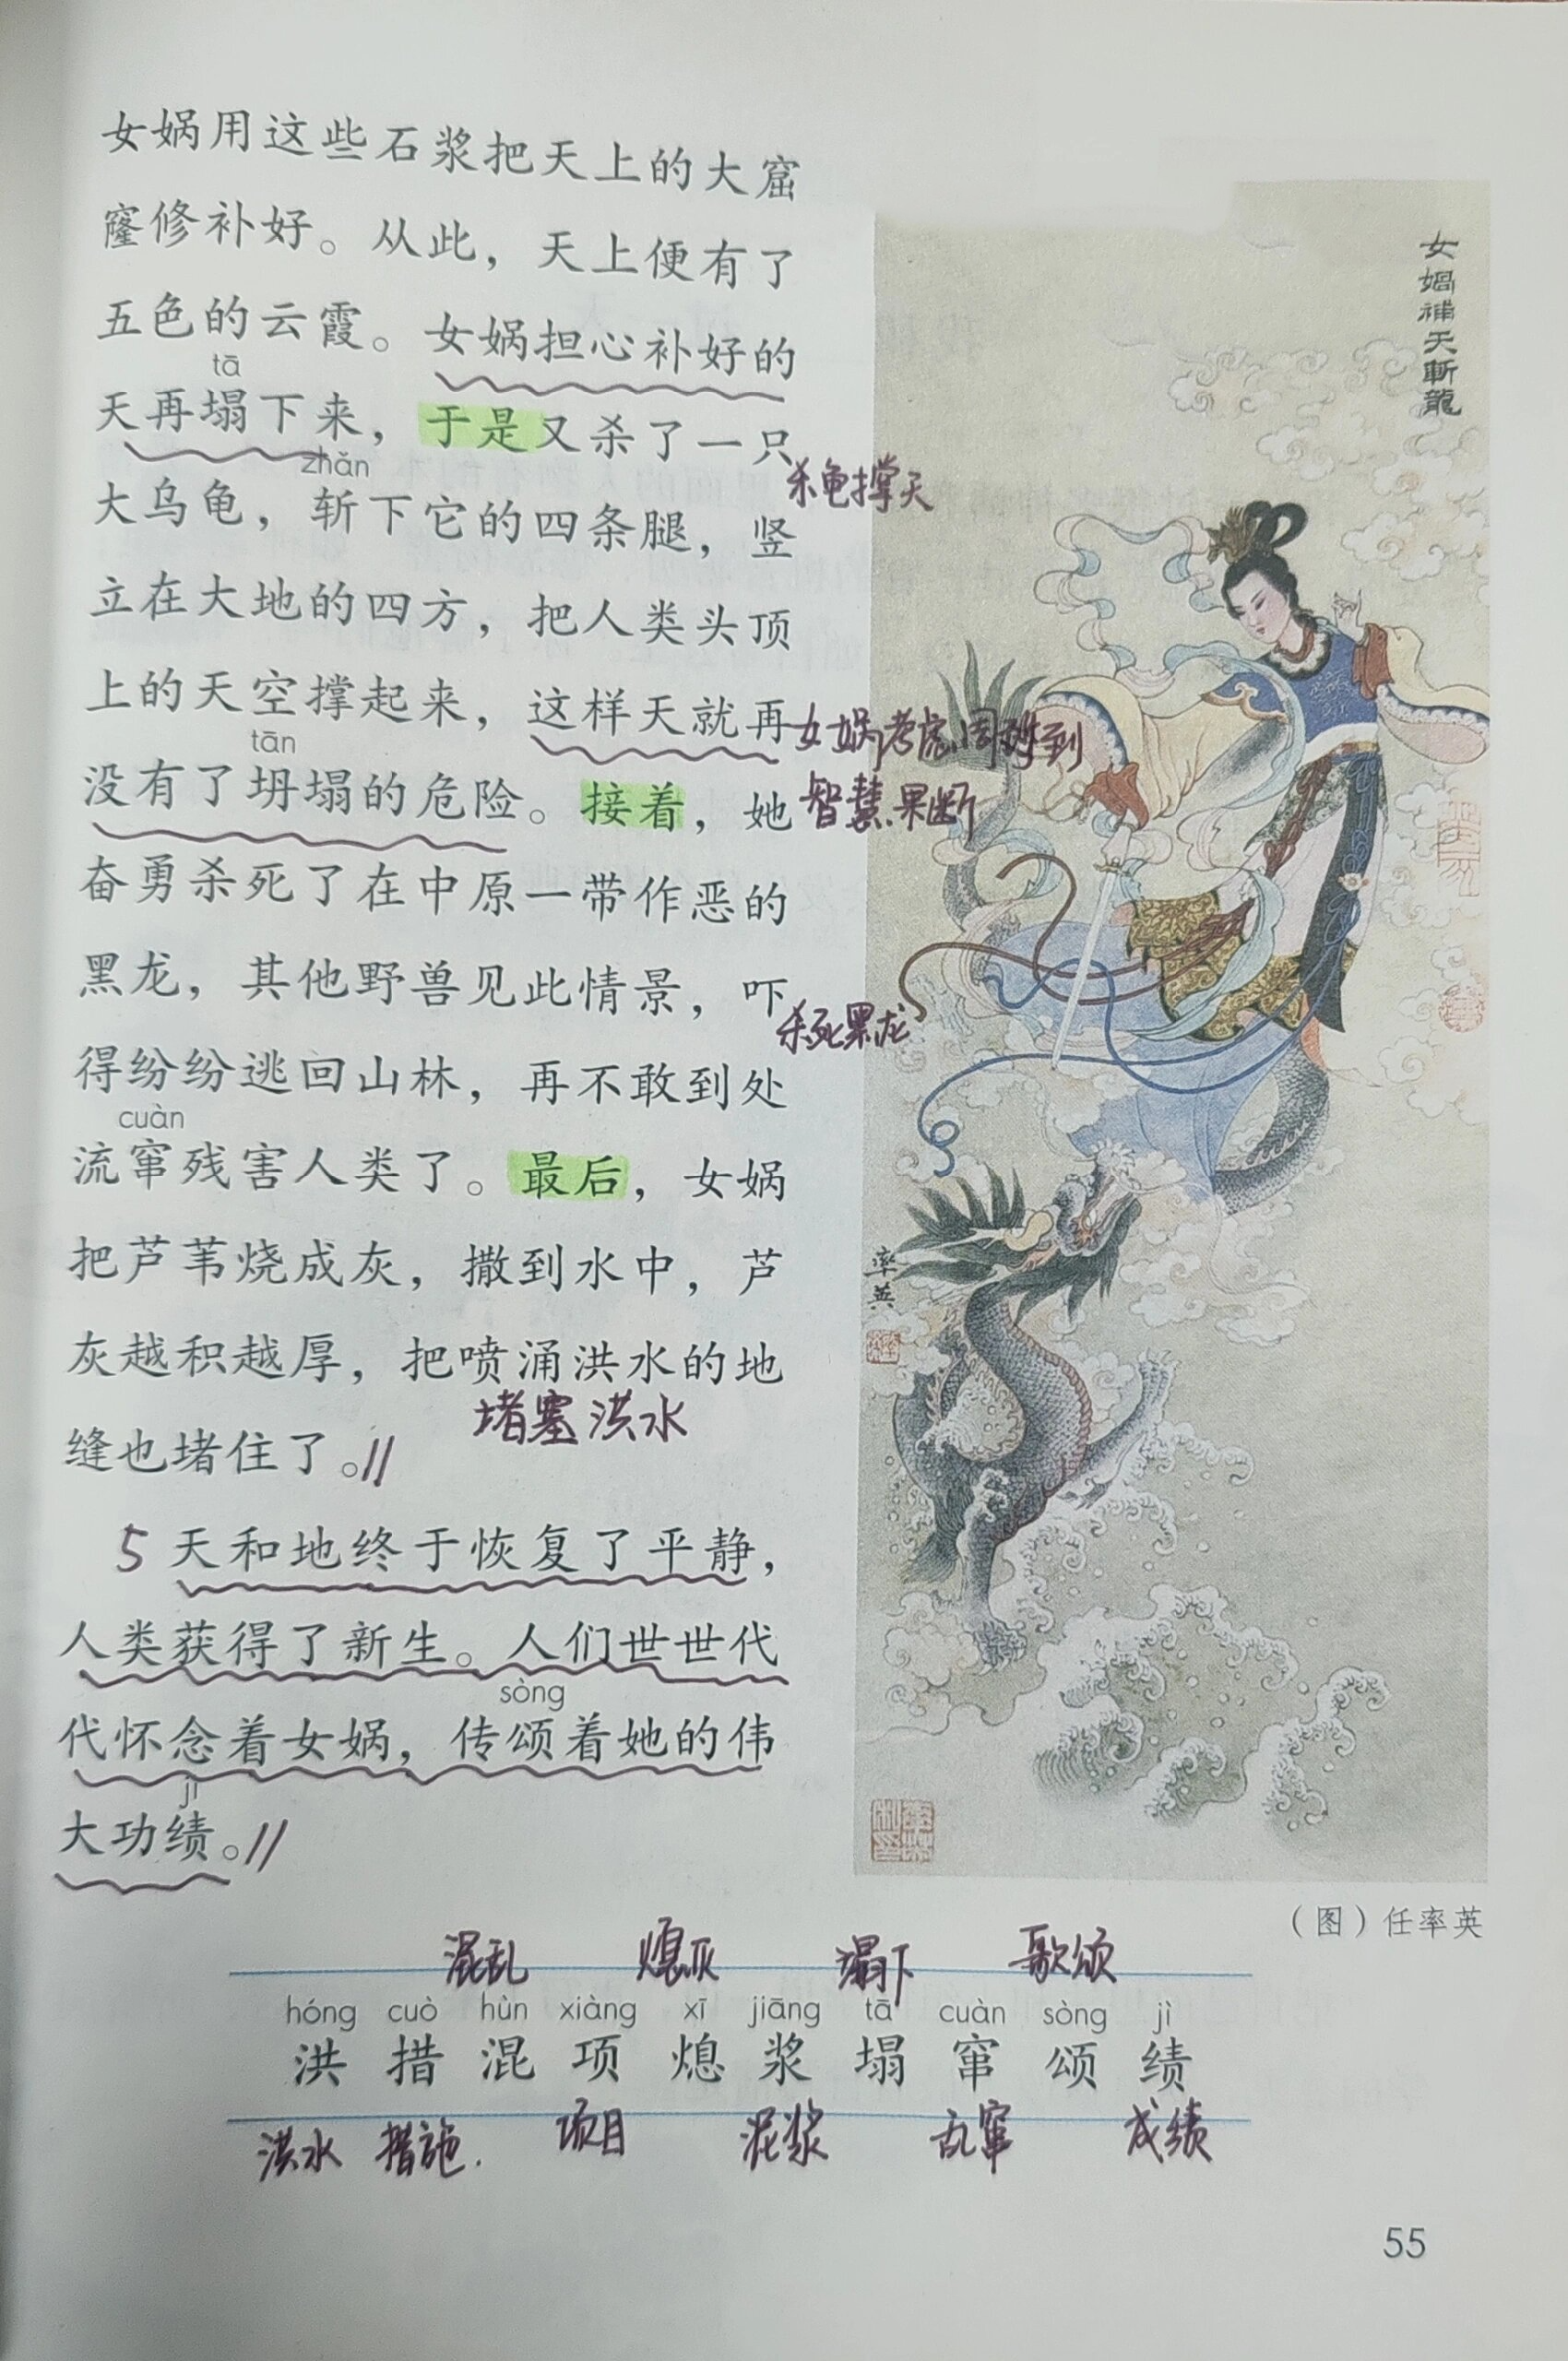 女娲用这些石浆把天上的大窟
窿修补好。从此，天上便有了
五色的云霞。女娲担心补好的
tā
天再塌下来，于是又杀了一只
杀龟撑天
zhǎn
大乌龟，斩下它的四条腿，竖
立在大地的四方，把人类头顶
上的天空撑起来，这样天就再
女娲考虑周到
tān
没有了坍塌的危险。接着，她
智慧、果断
奋勇杀死了在中原一带作恶的
黑龙，其他野兽见此情景，吓
杀死黑龙
得纷纷逃回山林，再不敢到处
cuàn
流窜残害人类了。最后，女娲
把芦苇烧成灰，撒到水中，芦
灰越积越厚，把喷涌洪水的地
堵塞洪水
缝也堵住了。//
5 天和地终于恢复了平静，
人类获得了新生。人们世世代
sòng
代怀念着女娲，传颂着她的伟
jì
大功绩。//
女娲補天斬龍
率英
（图）任率英
混乱 熄灭 塌下 歌颂
hóng cuò hùn xiàng xī jiāng tā cuàn sòng jì
洪 措 混 项 熄 浆 塌 窜 颂 绩
洪水 措施. 项目 泥浆 乱窜 成绩
55